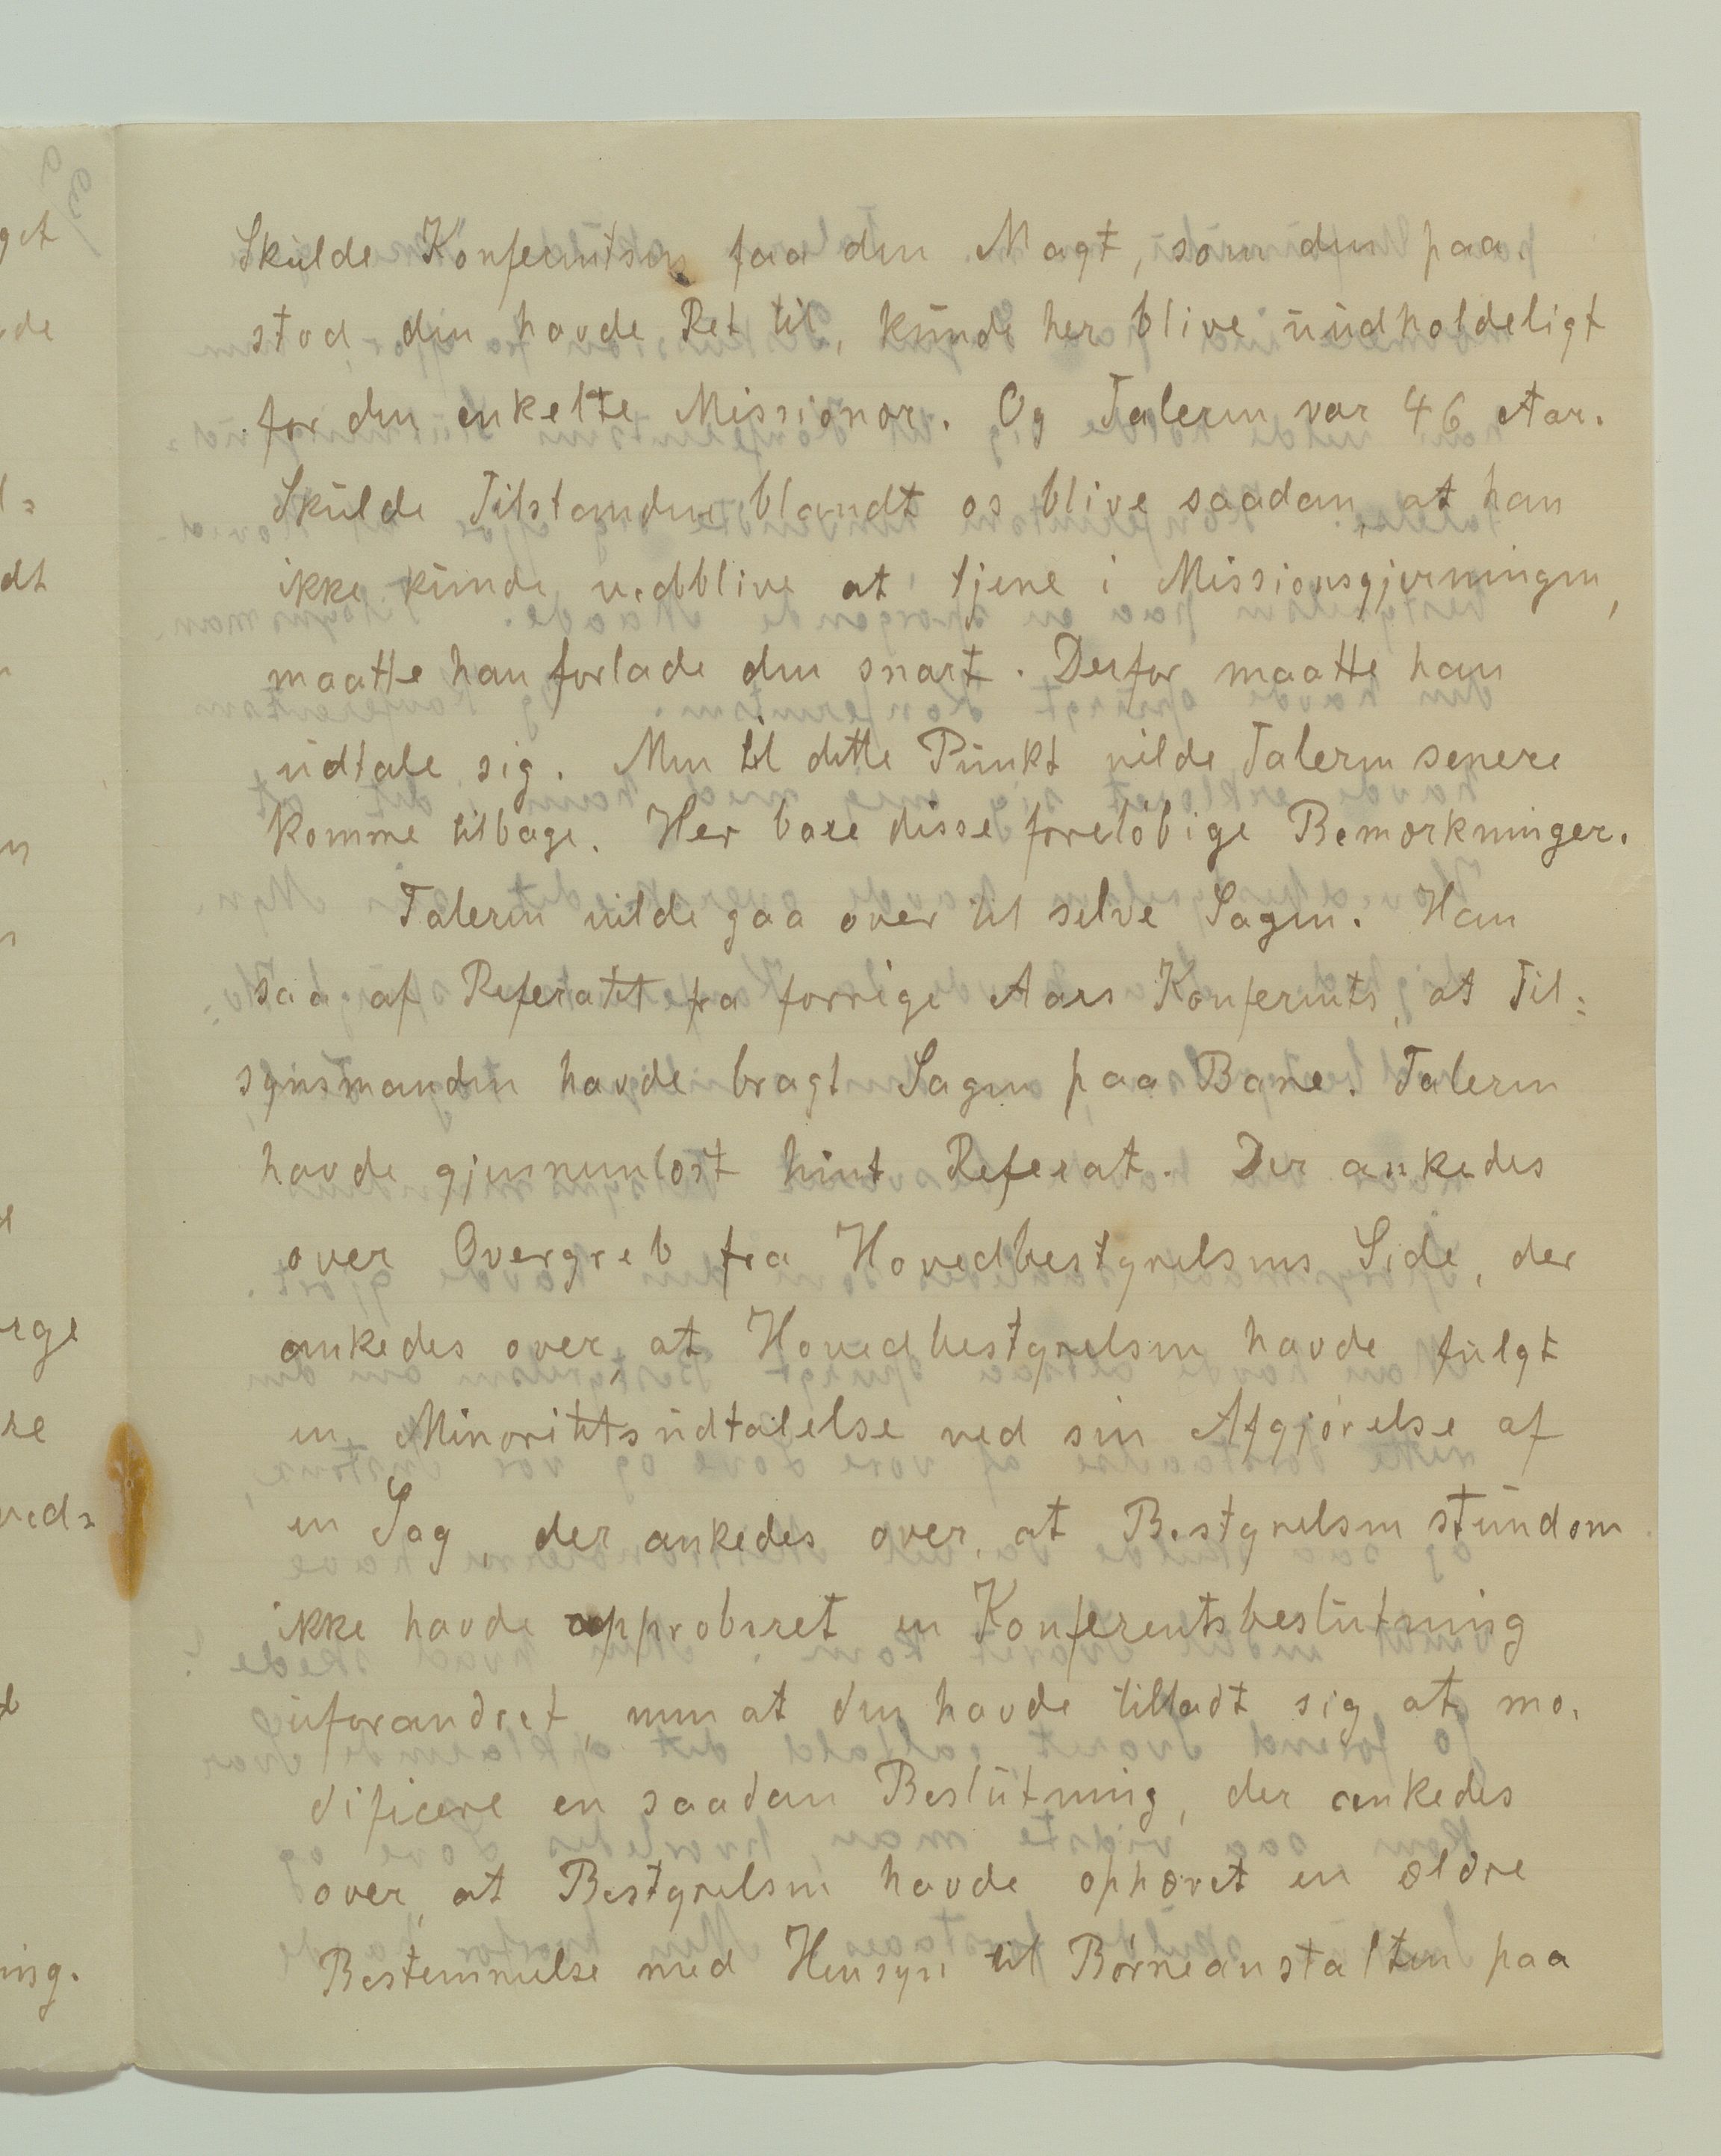 Skulde Konferentsen faa den Magt, som den paa-
stod, den havde Ret til, kunde her blive uudholdeligt
for den enkelte Missionær. Og Taleren var 46 Aar.
Skulde Tilstanden blandt os blive saadan, at han
ikke kunde vedblive at tjene i Missionsgjerningen,
maatte han forlade den snart. Derfor maatte han
udtale sig. Men til dette Punkt vilde Taleren senere
komme tilbage. Her bare disse foreløbige Bemærkninger.
Taleren vilde gaa over til selve Sagen. Han
saa af Referatet fra forrige Aars Konferents, at Til=
synsmanden havde bragt Sagen paa Bane. Taleren
havde gjennemlæst hint Referat. Der ankedes
over Overgreb fra Hovedbestyrelsens Side, der
ankedes over, at Hovedbestyrelsen havde fulgt
en Minoritetsudtalelse ved sin Afgjørelse af
en Sag, der ankedes over, at Bestyrelsen stundom
ikke havde approberet en Konferentsbeslutning
uforandret, men at den havde tilladt sig at mo-
dificere en saadan Beslutning, der ankedes
over, at Bestyrelsen havde ophævet en ældre
Bestemmelse med Hensyn til Børneanstalten paa
get
de
dt
rge
re
ved=
ning.